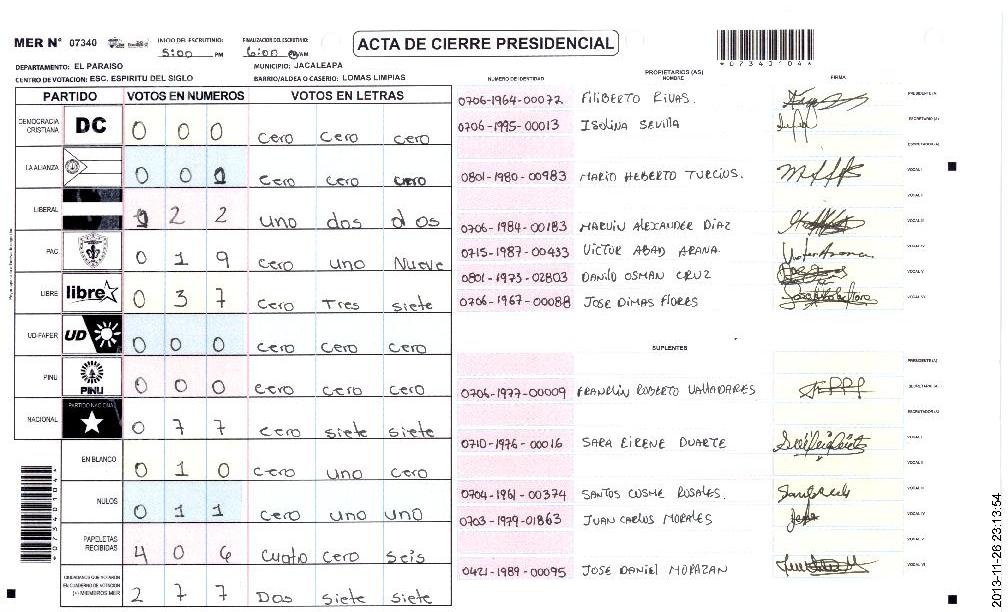 MER N° 07340
INICIO DEL ESCRUTINIO: 5:00 PM
FINALIZACION DEL ESCRUTINIO: 6:00 PM/AM
ACTA DE CIERRE PRESIDENCIAL
*07340104*
DEPARTAMENTO: EL PARAISO
MUNICIPIO: JACALEAPA
CENTRO DE VOTACION: ESC. ESPIRITU DEL SIGLO
BARRIO/ALDEA O CASERIO: LOMAS LIMPIAS
PARTIDO VOTOS EN NUMEROS VOTOS EN LETRAS
DEMOCRACIA CRISTIANA DC 0 0 0 cero cero cero
LA ALIANZA 0 0 0 cero cero cero
LIBERAL 1 2 2 uno dos dos
PAC 0 1 9 cero uno Nueve
LIBRE libre 0 3 7 cero Tres siete
UD-FAPER UD 0 0 0 cero cero cero
PINU PINU 0 0 0 cero cero cero
NACIONAL PARTIDO NACIONAL 0 7 7 cero siete siete
EN BLANCO 0 1 0 cero uno cero
NULOS 0 1 1 cero uno uno
PAPELETAS RECIBIDAS 4 0 6 cuatro cero seis
CIUDADANOS QUE VOTARON EN CUADERNO DE VOTACION (+) MIEMBROS MER 2 7 7 Dos siete siete
*07340104*
PROPIETARIOS (AS)
NUMERO DE IDENTIDAD NOMBRE FIRMA
0706-1964-00072 FILIBERTO RIVAS. PRESIDENTE (A)
0706-1995-00013 ISOLINA SEVILLA SECRETARIO (A)
ESCRUTADOR (A)
0801-1980-00983 MARIO HEBERTO TURCIOS. VOCAL I
VOCAL II
0706-1984-00183 MARVIN ALEXANDER DIAZ VOCAL III
0715-1987-00433 VICTOR ABAD ARANA. VOCAL IV
0801-1973-02803 DANILO OSMAN CRUZ VOCAL V
0706-1967-00088 JOSE DIMAS FLORES VOCAL VI
SUPLENTES
PRESIDENTE (A)
0706-1977-00009 FRANKLIN ROBERTO VALLADARES SECRETARIO (A)
ESCRUTADOR (A)
0710-1976-00016 SARA EIRENE DUARTE VOCAL I
VOCAL II
0704-1961-00374 SANTOS COSME ROSALES. VOCAL III
0703-1979-01863 JUAN CARLOS MORALES VOCAL IV
VOCAL V
0421-1989-00095 JOSE DANIEL MORAZAN VOCAL VI
2013-11-26 23:13:54